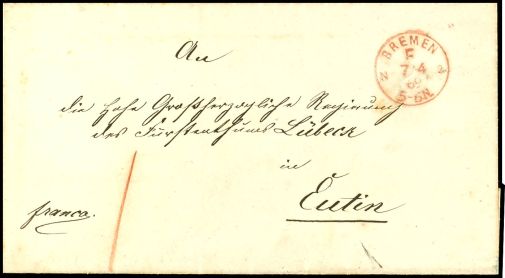 An
BREMEN
F
7 4
5-6N
die Hohe Großherzogliche Regierung
des Fürstenthums Lübeck
in
Eutin
franco.